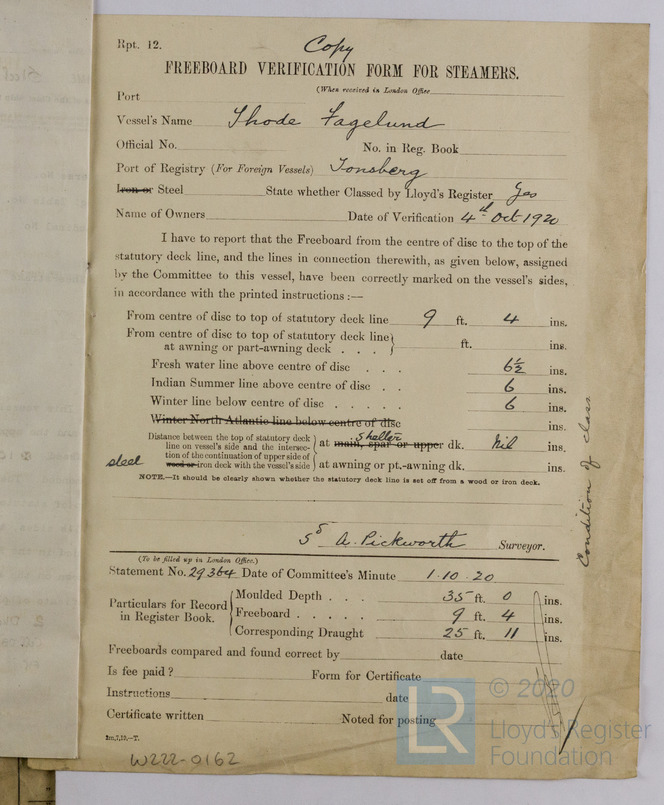 Rpt. 12.
Copy
FREEBOARD VERIFICATION FORM FOR STEAMERS.
(When received in London Office
Port
Vessel's Name Thode Fagelund
Official No. No. in Reg. Book
Port of Registry (For Foreign Vessels) Tonsberg
Iron or Steel State whether Classed by Lloyd's Register Yes
Name of Owners Date of Verification 4th Oct 1920
I have to report that the Freeboard from the centre of disc to the top of the
statutory deck line, and the lines in connection therewith, as given below, assigned
by the Committee to this vessel, have been correctly marked on the vessel's sides,
in accordance with the printed instructions :—
From centre of disc to top of statutory deck line 9 ft. 4 ins.
From centre of disc to top of statutory deck line
at awning or part-awning deck . . . ft. ins.
Fresh water line above centre of disc . . . 6½ ins.
Indian Summer line above centre of disc . . 6 ins.
Winter line below centre of disc . . . . . 6 ins.
Winter North Atlantic line below centre of disc ins.
Distance between the top of statutory deck
line on vessel's side and the intersec-
tion of the continuation of upper side of
steel wood or iron deck with the vessel's side
at main, spar or upper shelter dk. Nil ins.
at awning or pt.-awning dk. ins.
NOTE.—It should be clearly shown whether the statutory deck line is set off from a wood or iron deck.
Sd A. Pickworth Surveyor.
(To be filled up in London Office.)
Statement No. 29364 Date of Committee's Minute 1.10.20
Particulars for Record
in Register Book.
Moulded Depth . . . 35 ft. 0 ins.
Freeboard . . . . . 9 ft. 4 ins.
Corresponding Draught 25 ft. 11 ins.
Freeboards compared and found correct by date
Is fee paid? Form for Certificate
Instructions date
Certificate written Noted for posting
2m,7,19.—T.
W222-0162
Condition of class
LR
© 2020
Lloyd's Register
Foundation